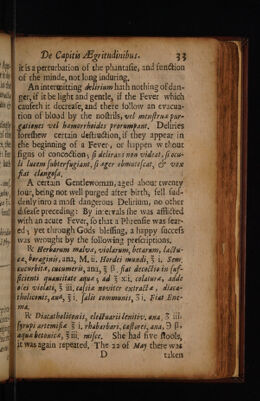 De Capitis Ægritudinibus. 33
it is a perturbation of the phantasie, and function
of the minde, not long induring.
An intermitting delirium hath nothing of dan-
ger, if it be light and gentle, if the Fever which
causeth it decrease, and there follow an evacua-
tion of blood by the nostrils, vel menstruæ pur-
gationes vel hæmorrhoides prorumpant. Deliries
foreshew certain destruction, if they appear in
the beginning of a Fever, or happen without
signs of concoction, si delirans non videat, si ocu-
li lucem subterfugiant, si æger obmutescat, & vox
fiat clangosa.
A certain Gentlewoman, aged about twenty
four, being not well purged after birth, fell sud-
denly into a most dangerous Delirium, no other
disease preceding: By intervals she was afflicted
with an acute Fever, so that a Phrensie was fear-
ed; yet through Gods blessing, a happy success
was wrought by the following prescriptions.
℞ Herbarum malvæ, violarum, betarum, lactu-
cæ, boraginis, ana, M. ii. Hordei mundi, ℥ i. Sem.
cucurbitæ, cucumeris, ana, ℥ ß. fiat decoctio in suf-
ficienti quantitate aquæ, ad ℥ xi, colaturæ, adde
olei violati, ℥ iii. cassiæ noviter extractæ, diaca-
tholiconis, anā, ℥ i. salis communis, ʒ i. Fiat Ene-
ma.
℞ Diacatholiconis, electuarii lenitiv. ana, ʒ iii.
syrupi artemisiæ ℥ i. rhabarbari, castorei, ana, ℈ ß.
aquæ betonicæ, ℥ iii. misce. She had five stools,
it was again repeated. The 22 of May there was
D taken